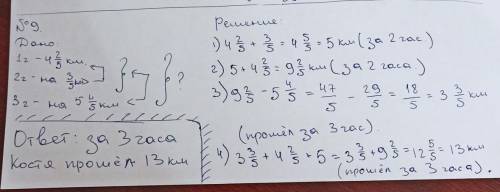 №9.
Дано:
1г - 4 2/5 км.
2г - на 3/5
3г - на 5 4/5 км
?
Ответ: за 3 часа
Костя прошёл 13 км
Решение:
1) 4 2/5 + 3/5 = 4 5/5 = 5 км (за 2 час)
2) 5 + 4 2/5 = 9 2/5 км (за 2 часа)
3) 9 2/5 - 5 4/5 = 47/5 - 29/5 = 18/5 = 3 3/5 км
(прошёл за 3 час).
4) 3 3/5 + 4 2/5 + 5 = 3 3/5 + 9 2/5 = 12 5/5 = 13 км
(прошёл за 3 часа).